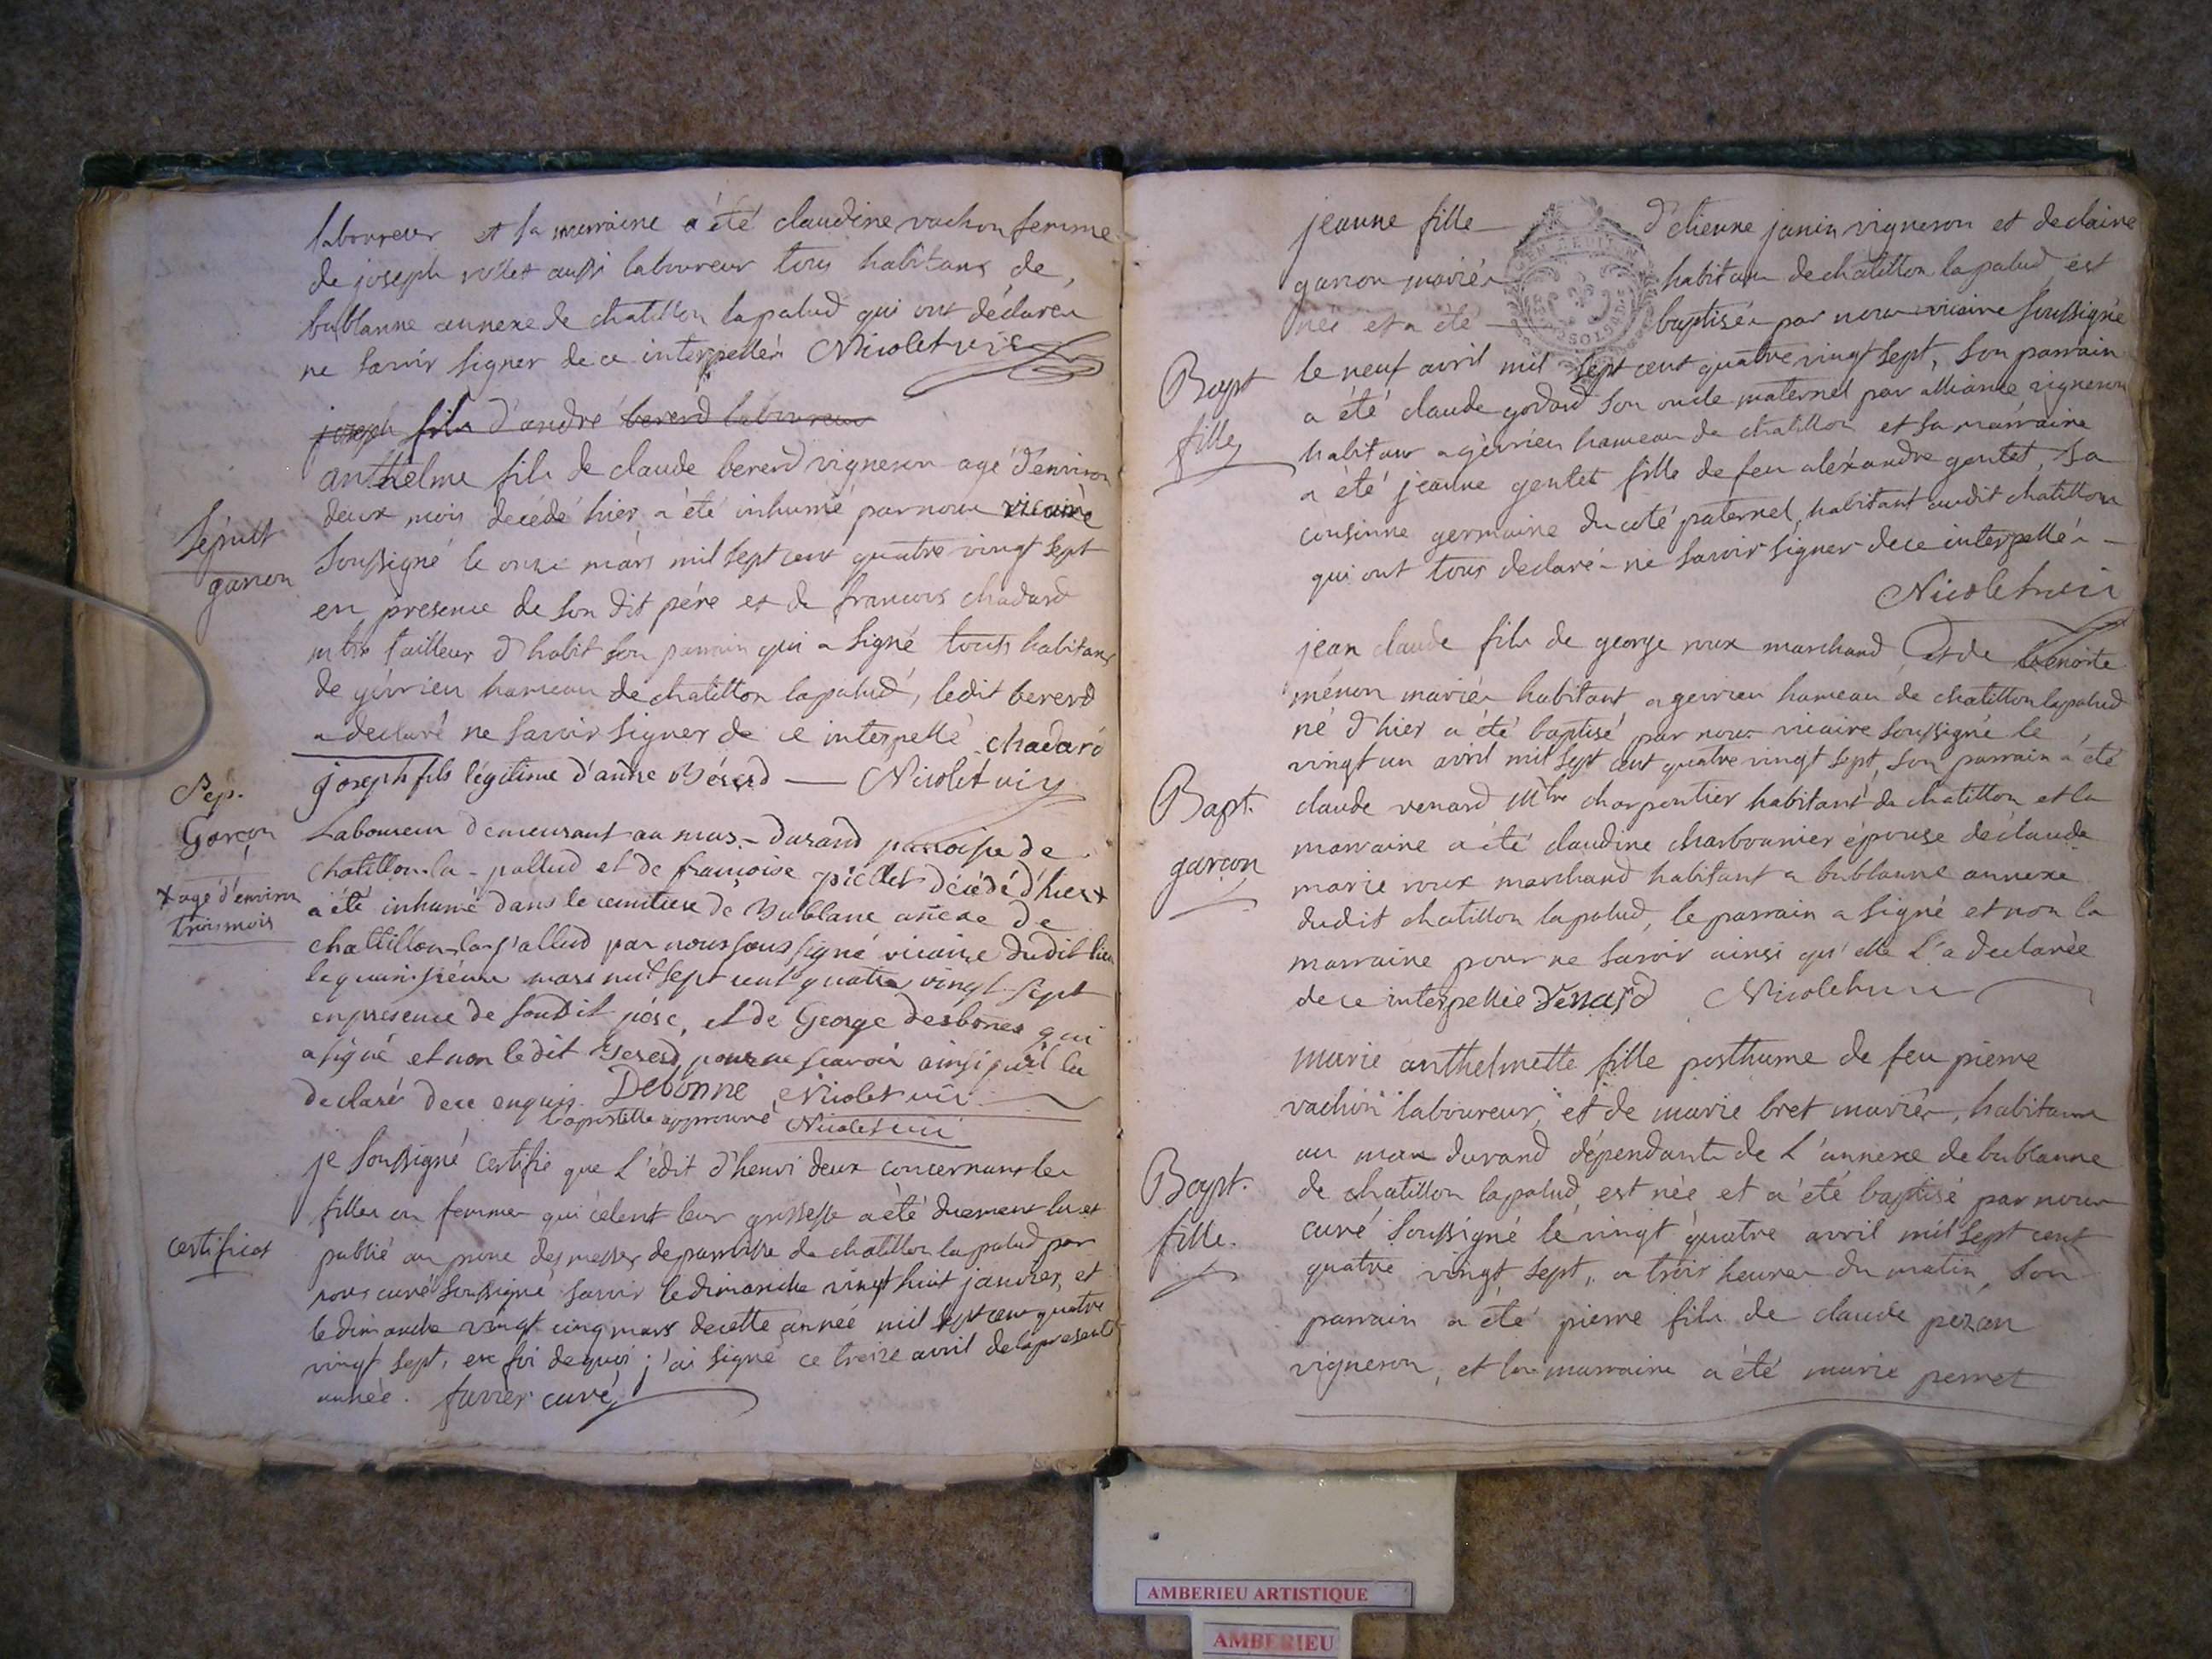 laboureur et sa marraine a été claudine vachon femme
de joseph rollet aussi laboureur tous habitans de
bublanne annexe de chatillon lapalud qui ont déclarés
ne savoir signer de ce interpellés Nicolet vic
joseph fils d'andré bererd laboureur
anthelme fils de claude bererd vigneron agé d'environ
deux mois decédé hier a été inhumé par nous vicaire
Sépult
garcon
soussigné le onze mars mil sept cent quatre vingt sept
en presence de son dit pére et de francois chadard
mtre tailleur d'habit son parrain qui a signé touts habitans
de gévrieu hameau de chatillon lapalud, ledit bererd
a declaré ne savoir signer de ce interpellé chadard
joseph fils légitime d'andre Bérerd — Nicolet vic
Sep.
Garçon
Laboureur demeurant au mas-durand paroisse de
chatillon-la-pallud et de francoise piollet décédé d'hier x
x agé d'environ
trois mois
a été inhumé dans le cemitiere de Bublane anexe de
chattillon-la-pallud par nous sous signé vicaire dudit lieu
le quinzième mars mil sept cent quatre vingt-sept
en presence de sondit pére, et de George desbones qui
a signé et non ledit Bererd pour ne scavoir ainsi qu'il la
declaré de ce enquis. Debonne Nicolet vic
l'apostille approuvé Nicolet vic
je soussigné certifie que L'édit d'henri deux concernant les
filles ou femmes qui cèlent leur grossesse a été duement lu et
certificat
publié au prone des messes de parroisse de chatillon lapalud par
nous curé soussigné savoir le dimanche vingt huit janvier, et
le dimanche vingt cinq mars de cette année mil sept cent quatre
vingt sept, en foi de quoi j'ai signé ce treize avril de la presente
année. favier curé
jeanne fille d'etienne janin vigneron et de claire
garron mariés habitans de chatillon lapalud est
née et a été baptisée par nous vicaire soussigné
Bapt
fille
le neuf avril mil sept cent quatre vingt sept, son parrain
a été claude godard son oncle maternel par alliance vigneron
habitant a gévrieu hameau de chatillon et sa marraine
a été jeanne gentet fille de feu aléxandre gentet, sa
cousinne germaine du coté paternel, habitant audit chatillon
qui ont tous declaré ne savoir signer de ce interpellés
Nicolet vic
jean claude fils de george roux marchand et de benoite
ménon mariés habitant a gevrieu hameau de chatillon lapalud
né d'hier a été baptisé par nous vicaire soussigné le
vingt un avril mil sept cent quatre vingt sept, son parrain a été
Bapt.
garcon
claude venard mtre charpentier habitant de chatillon et la
marraine a été claudine charbonnier épouse de claude
marie roux marchand habitant a bublanne annexe
dudit chatillon lapalud, le parrain a signé et non la
marraine pour ne savoir ainsi qu'elle L'a declarée
de ce interpellée Venard Nicolet vic
marie anthelmette fille posthume de feu pierre
vachon laboureur, et de marie bret mariés, habitans
au mas durand dépendante de L'annexe de bublanne
Bapt.
fille.
de chatillon lapalud, est née et a été baptisé par nous
curé soussigné le vingt quatre avril mil sept cent
quatre vingt sept, a trois heures du matin, son
parrain a été pierre fils de claude pezan
vigneron, et la marraine a été marie perret
AMBERIEU ARTISTIQUE
AMBERIEU